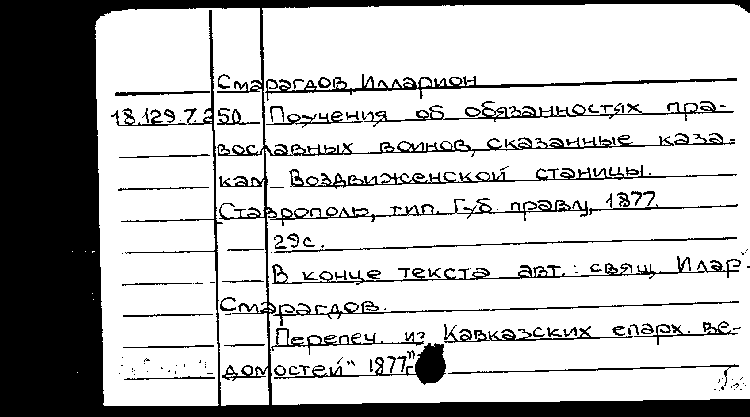 Смарагдов, Илларион
18.129.7.250 Поучения об обязанностях пра-
вославных воинов, сказанные каза-
кам Воздвиженской станицы.
Ставрополь, тип. Губ. правл, 1877.
29с.
В конце текста авт.: свящ. Илар.
Смарагдов.
Перепеч. из "Кавказских епарх. ве-
домостей" 1877г.